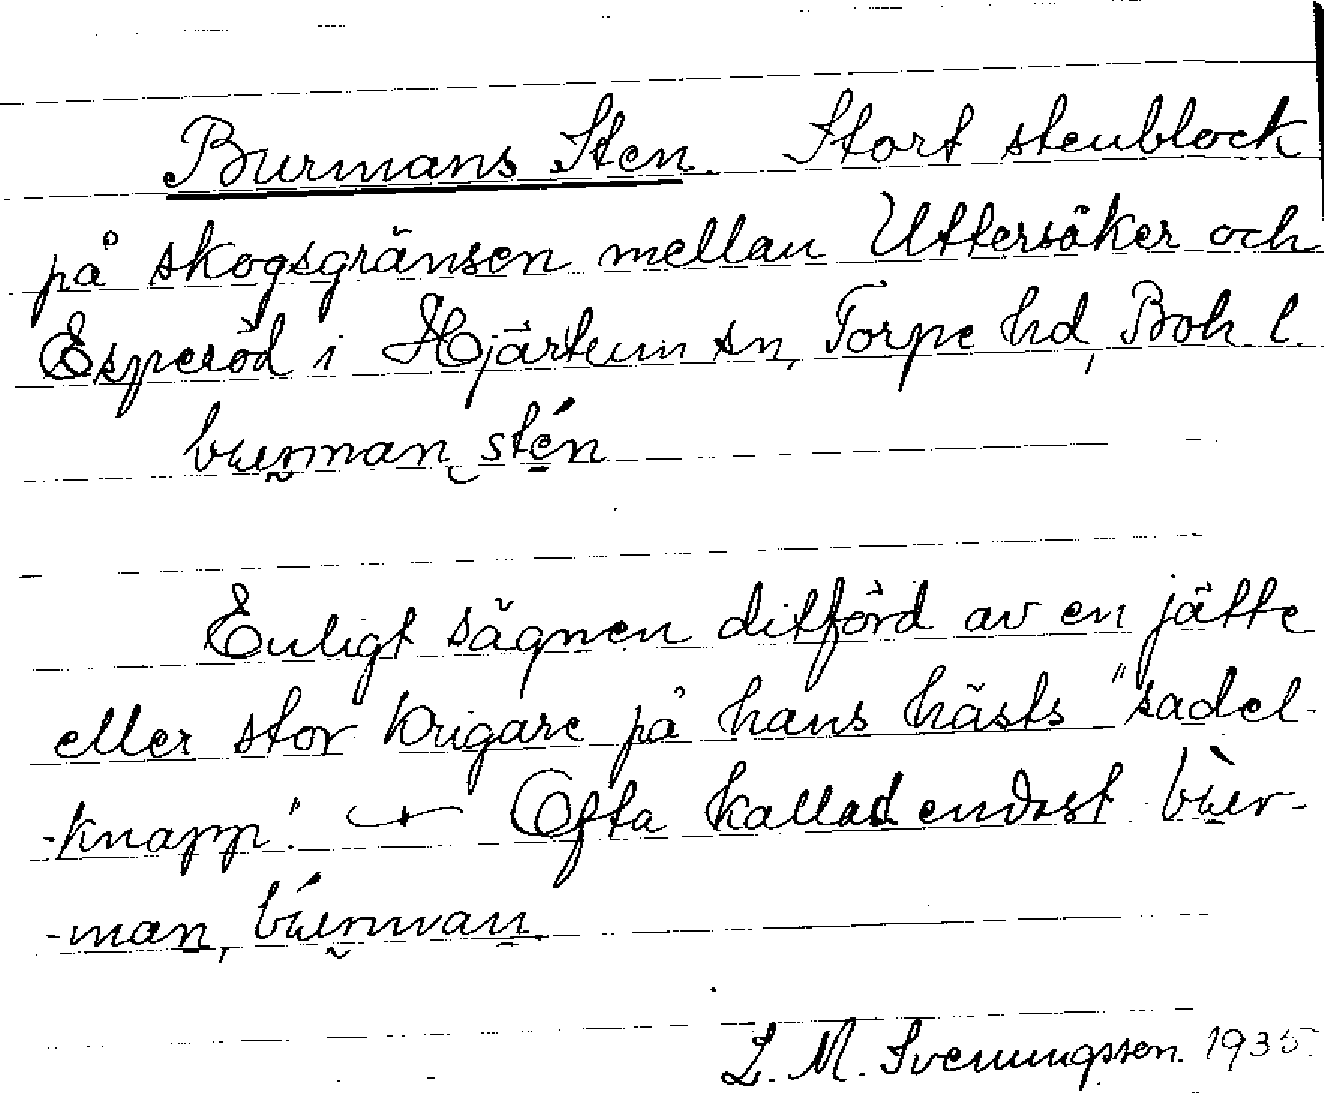 Burmans Sten. Stort stenblock
på skogsgränsen mellan Uttersäker och
Esperöd i Hjärtum sn, Torpe hd, Boh. l.
burman stén
Enligt sägnen ditförd av en jätte
eller stor krigare på hans hästs "sadel-
-knapp". — Ofta kallad endast bùr-
-man, búrman.
L. M. Svenungsson. 1935.